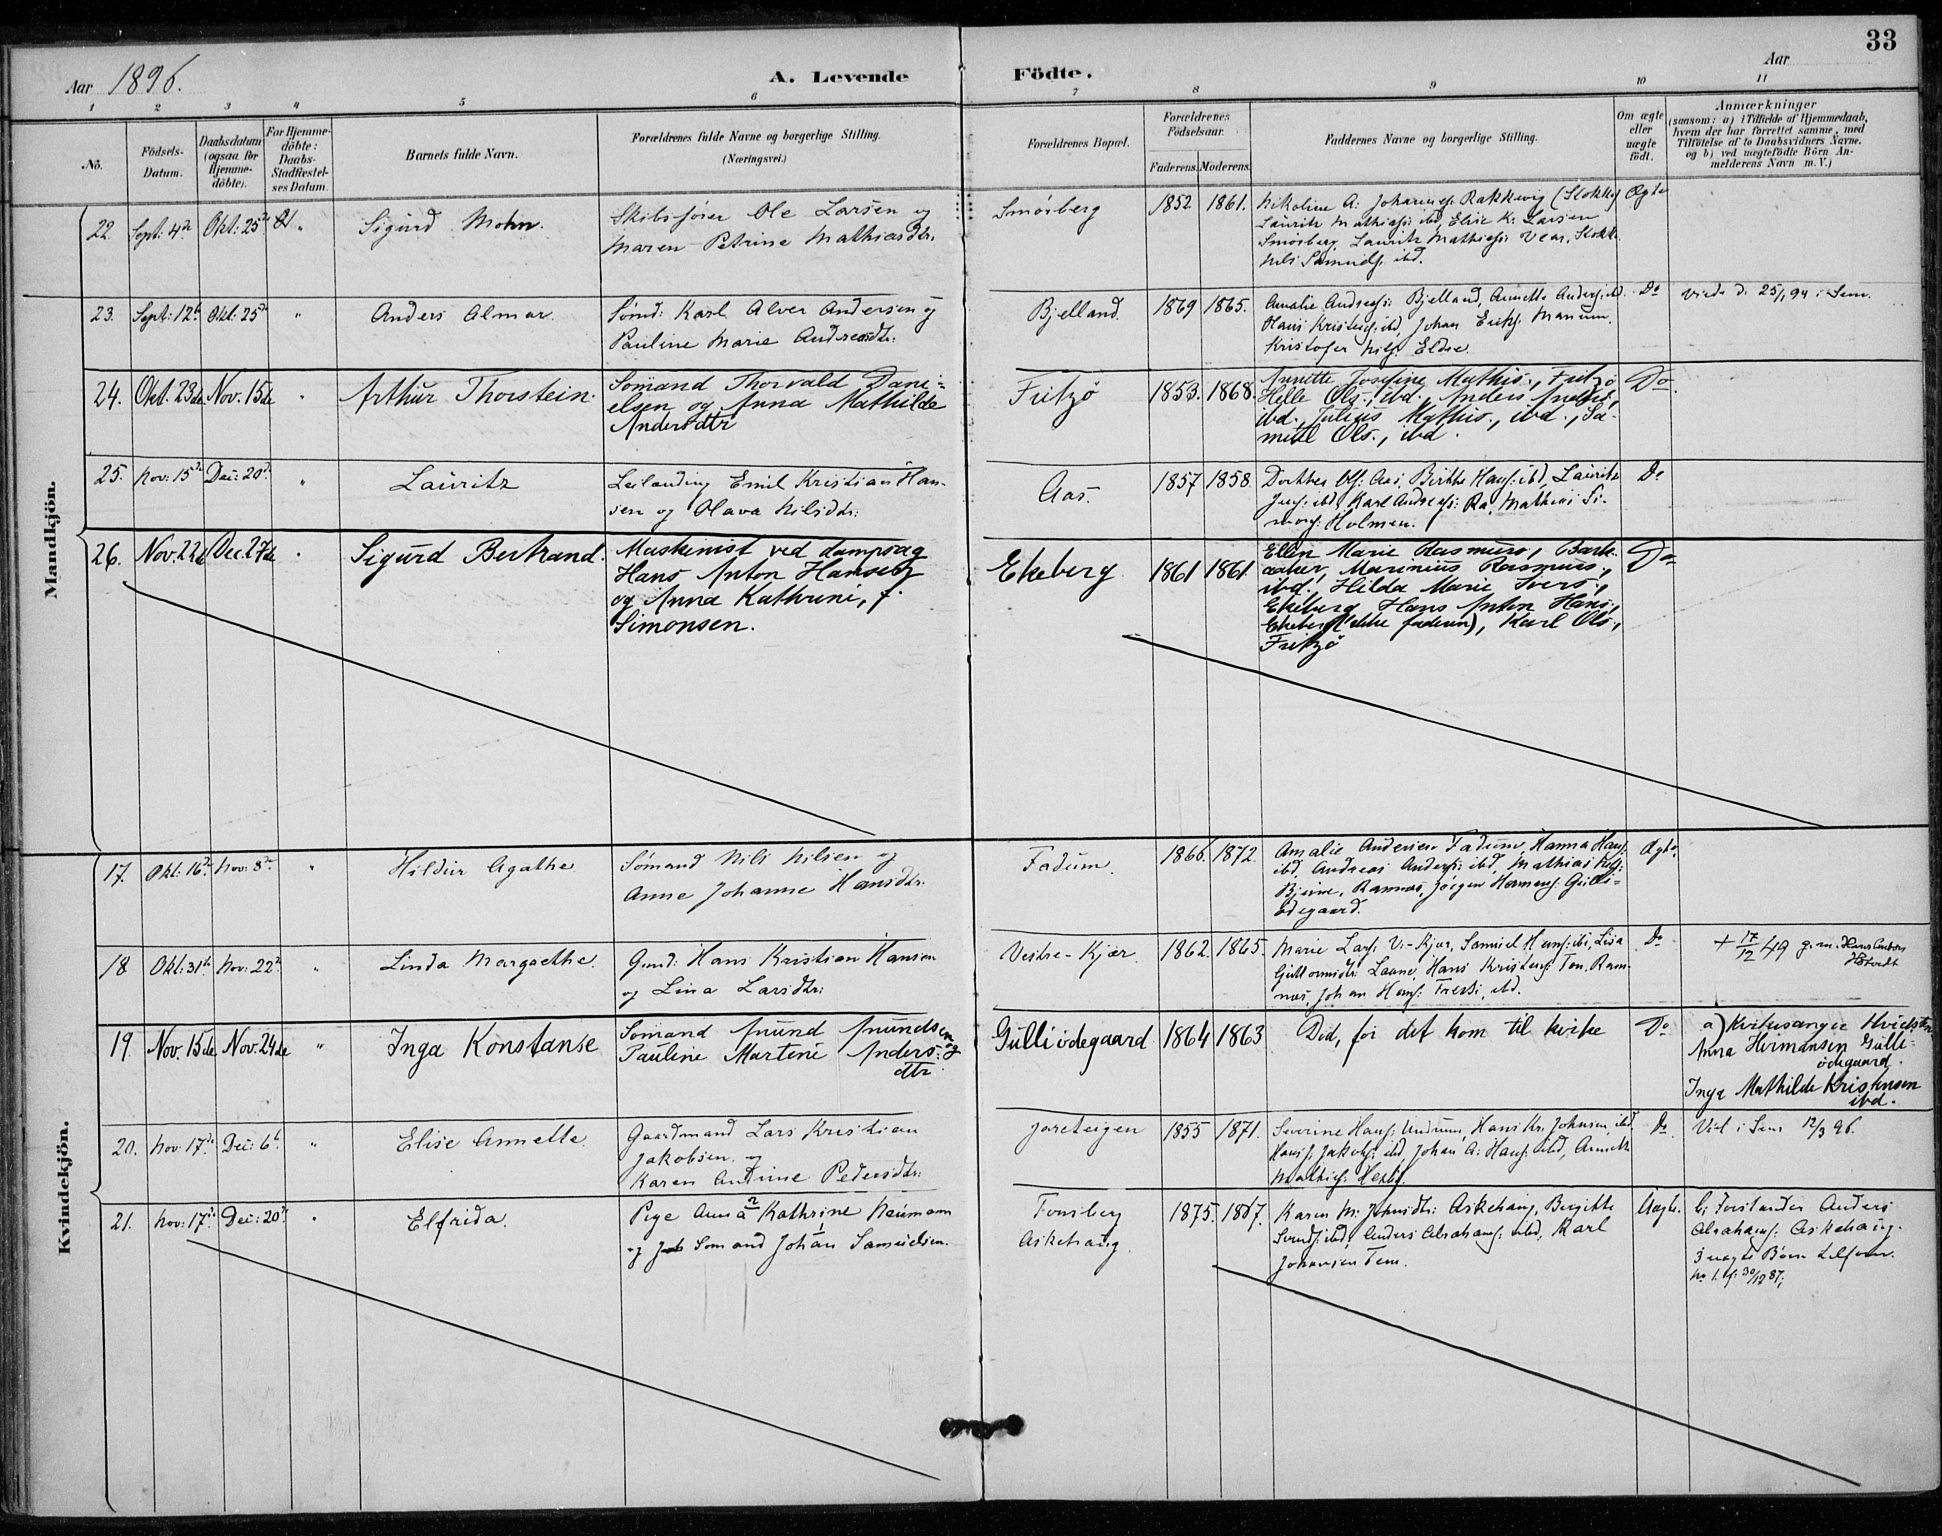 33
Aar 1896.
A. Levende Födte.
Aar
1 2 3 4 5 6 7 8 9 10 11
No.
Födsels-Datum.
Daabsdatum (ogsaa for Hjemme-döbte).
For Hjemme-döbte: Daabs-Stadfestel-ses Datum.
Barnets fulde Navn.
Forældrenes fulde Navne og borgerlige Stilling.
(Næringsvei.)
Forældrenes Bopæl.
Forældrenes Födselsaar.
Faderens. Moderens.
Faddernes Navne og borgerlige Stilling.
Om ægte eller uægte födt.
Anmærkninger
(saasom: a) i Tilfælde af Hjemmedaab, hvem der har forrettet samme, med Tilföielse af to Daabsvidners Navne. og b) ved uægtefödte Börn Anmelderens Navn m. V.)
Mandkjön.
22. Sept: 4de Okt: 25de " Sigurd Mohn.
Skibsfører Ole Larsen og
Maren Petrine Mathiasdtr.
Smørberg 1852 1861.
Nikoline A. Johannes: Rakkevig (Stokke)
Lauritz Mathias: ibd, Elise K. Larsen
Smørberg, Lauritz Mathias: Vear, Stokke
Nils Samuels. ibd.
Ægte
23. Sept: 12te Okt: 25de " Anders Almar.
Sømd: Karl Alver Andersen og
Pauline Marie Andreasdtr:
Bjelland. 1869 1865.
Amalie Andreas: Bjelland, Annette Anders: ibd.
Hans Kristens: ibd Johan Eriks: Manum.
Kristofer Nils: Eldre.
Do
Viede d. 25/1 94 i Sem.
24. Okt. 23de Nov. 15de " Arthur Thorstein.
Sømand Thorvald Dani-
elsen og Anna Mathilde
Andersdtr
Fritzø 1853. 1868.
Annette Josefine Mathis., Fritzø
Helle Ols., ibd., Anders Anders.,
ibd., Julius Mathis., ibd., Sa-
muel Ols., ibd.
Do.
25. Nov: 15de Dec: 20de " Lauritz
Leilending Emil Kristian Han-
sen og Olava Nilsdtr:
Aas. 1857 1858.
Dorthea Ols: Aas, Birthe Hans: ibd, Lauritz
Jens: ibd, Karl Andreas: Ra, Mathias Si-
mons: Holmen.
Do
26. Nov. 22de Dec. 27de " Sigurd Bertrand.
Maskinist ved dampsag
Hans Anton Hansen
og Anna Kathrine, f.
Simonsen.
Ekeberg 1861 1861.
Ellen Marie Rasmuss., Bark-
aaker, Marinius Rasmuss.,
ibd., Hilda Marie Ivers.,
Ekeberg, Hans Anton Hans.,
Ekeberg (ikke faderen), Karl Ols.,
Fritzø
Do
Kvindekjön.
17. Okt: 16de Nov: 8de " Hildur Agathe
Sømand Nils Nilsen og
Anne Johanne Hansdtr:
Fadum. 1866. 1872.
Amalie Andersen Fadum, Hanna Hans:
ibd. Andreas Anders: ibd, Mathias
Bjerne, Ramnæs, Jørgen Hermans: Gulli-
ødegaard.
Ægte
18 Okt: 31te Nov: 22de " Linda Margrethe.
Gmd: Hans Kristian Hansen
og Lina Larsdtr:
Vestre-Kjær. 1862. 1865.
Marie Lars: V.-Kjær, Samuel Hans: ibd, Lisa
Guttormsdtr: Laane, Hans Kristens: Ton, Ram-
næs, Johan Hans: ibd.
Do
+ 17/12 49 g.m. Hans
19. Nov. 15de Nov. 24de " Inga Konstanse
Sømand Amund Amundsen og
Pauline Martine Anders-
dtr.
Gulliødegaard 1864 1863
Død, før det kom til kirke
Do
a) Kirkesanger
Anna Hermansen Gulli-
ødegaard.
Inga Mathilde Kristensen
ibd.
20. Nov: 17de Dec: 6te " Elise Annette.
Gaardmand Lars Kristian
Jakobsen og
Karen Andrine Pedersdtr:
Jareteigen 1855 1871.
Severine Hans: Undrum, Hans Kr. Johnsen ibd,
Hans: Jakobs: ibd, Johan A: Hans: ibd, Annette
Mathias:
Do.
Viet i Sem 12/3 96.
21. Nov: 17de Dec: 20de " Elfrida.
Pige Anna Kathrine Naumann
og Sømand Johan Samuelsen.
Tønsberg
Askehaug. 1875. 1867.
Karen M. Johnsdtr: Askehaug, Birgitte
Svends: ibd, Anders Abrahams: ibd, Karl
Johansen Tem.
Uægte.
b) Forstander Anders
Abrahams: Askehaug.
3 uægte Børn
No 1. 30/12 87;